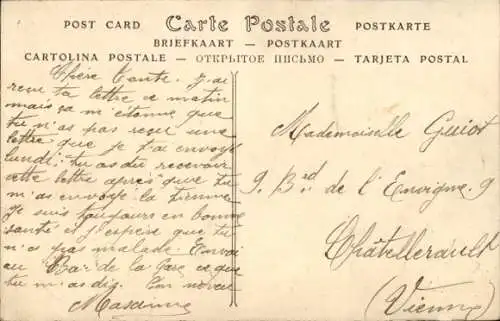 POST CARD Carte Postale POSTKARTE
BRIEFKAART — POSTKAART
CARTOLINA POSTALE — ОТКРЫТОЕ ПИСЬМО — TARJETA POSTAL
Chère Tante. J ai
reçu ta lettre ce matin
mais sa m'étonne que
tu n'as pas reçu une
lettre que je t'ai envoyé
lundi, tu as du recevoir
cette lettre après que tu
m'as envoyé la tienne
Je suis toujours en bonne
santé et j'espère que tu
n'es pas malade. Envoi
au Bar de la Gare ce que
tu m'as dis.
Mademoiselle Guiot
9. Bd de l'Envigne. 9
Châtellerault
(Vienne)